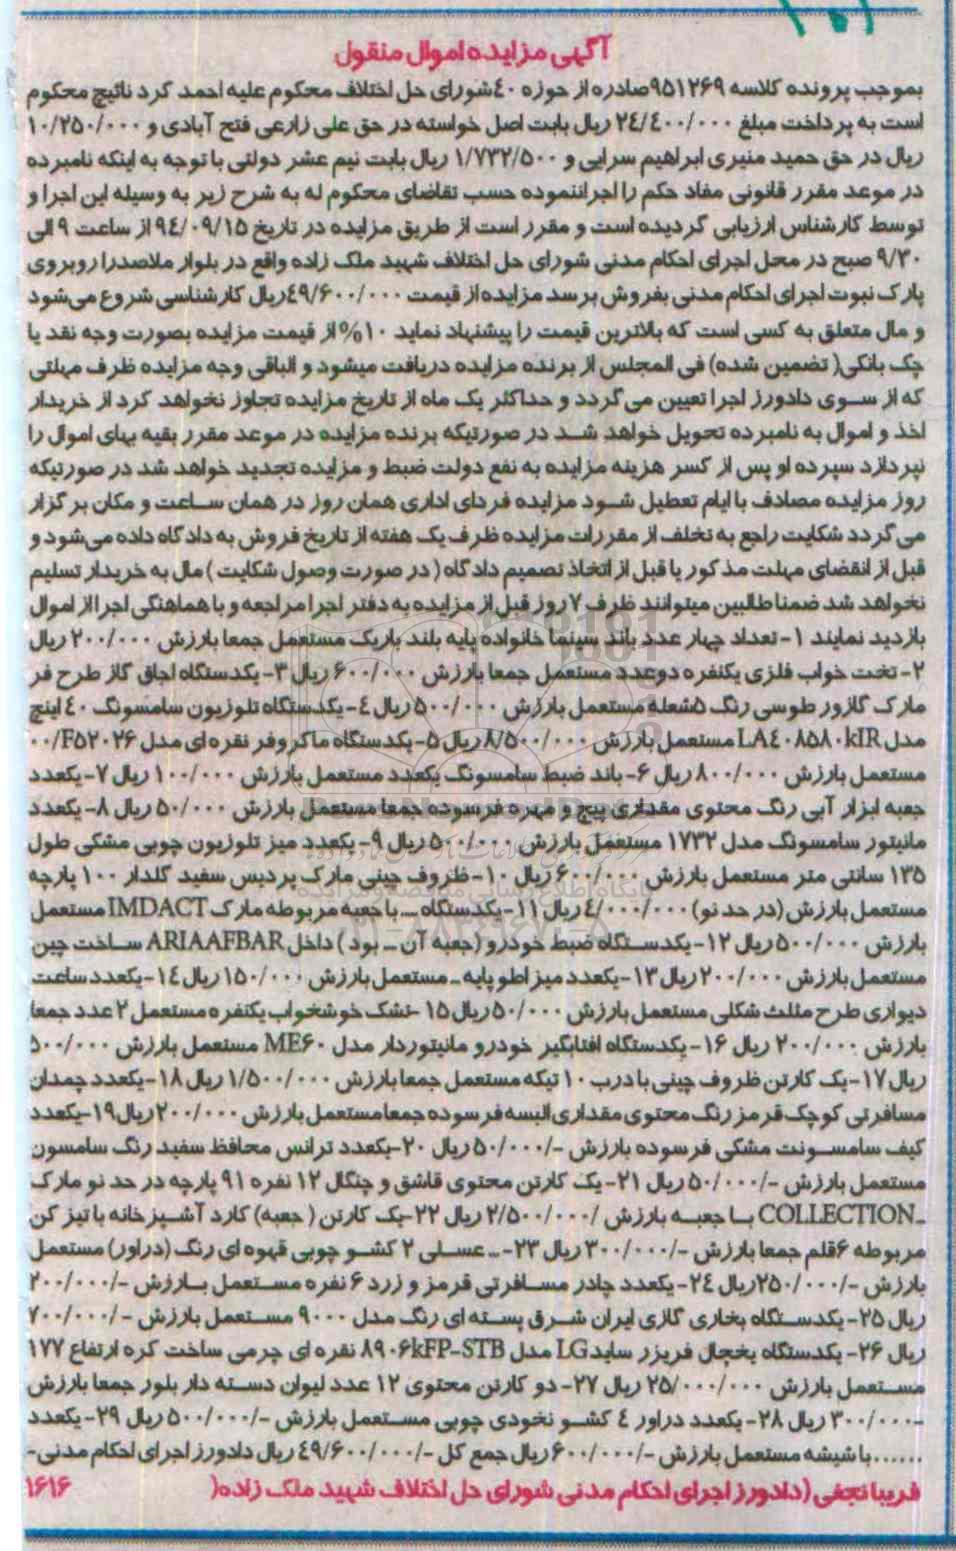 آگهی مزایده اموال منقول
بموجب پرونده کلاسه ۹۵۱۲۶۹صادره از حوزه ۴۰شورای حل اختلاف محکوم علیه احمد کرد نائیج محکوم
است به پرداخت مبلغ ۲۴/۴۰۰/۰۰۰ ریال بابت اصل خواسته در حق علی زارعی فتح آبادی و ۱۰/۲۵۰/۰۰۰
ریال در حق حمید منیری ابراهیم سرایی و ۱/۷۳۲/۵۰۰ ریال بابت نیم عشر دولتی با توجه به اینکه نامبرده
در موعد مقرر قانونی مفاد حکم را اجراننموده حسب تقاضای محکوم له به شرح زیر به وسیله این اجرا و
توسط کارشناس ارزیابی گردیده است و مقرر است از طریق مزایده در تاریخ ۹۴/۰۹/۱۵ از ساعت ۹ الی
۹/۳۰ صبح در محل اجرای احکام مدنی شورای حل اختلاف شهید ملک زاده واقع در بلوار ملاصدرا روبروی
پارک نبوت اجرای احکام مدنی بفروش برسد مزایده از قیمت ۴۹/۶۰۰/۰۰۰ریال کارشناسی شروع می‌شود
و مال متعلق به کسی است که بالاترین قیمت را پیشنهاد نماید ۱۰% از قیمت مزایده بصورت وجه نقد یا
چک بانکی( تضمین شده) فی المجلس از برنده مزایده دریافت میشود و الباقی وجه مزایده ظرف مهلتی
که از سوی دادورز اجرا تعیین می گردد و حداکثر یک ماه از تاریخ مزایده تجاوز نخواهد کرد از خریدار
اخذ و اموال به نامبرده تحویل خواهد شد در صورتیکه برنده مزایده در موعد مقرر بقیه بهای اموال را
نپردازد سپرده او پس از کسر هزینه مزایده به نفع دولت ضبط و مزایده تجدید خواهد شد در صورتیکه
روز مزایده مصادف با ایام تعطیل شود مزایده فردای اداری همان روز در همان ساعت و مکان برگزار
می گردد شکایت راجع به تخلف از مقررات مزایده ظرف یک هفته از تاریخ فروش به دادگاه داده می‌شود و
قبل از انقضای مهلت مذکور یا قبل از اتخاذ تصمیم دادگاه ( در صورت وصول شکایت ) مال به خریدار تسلیم
نخواهد شد ضمنا طالبین میتوانند ظرف ۷ روز قبل از مزایده به دفتر اجرا مراجعه و با هماهنگی اجرا از اموال
بازدید نمایند ۱- تعداد چهار عدد باند سینما خانواده پایه بلند باریک مستعمل جمعا بارزش ۲۰۰/۰۰۰ ریال
۲- تخت خواب فلزی یکنفره دوعدد مستعمل جمعا بارزش ۶۰۰/۰۰۰ ریال ۳- یکدستگاه اجاق گاز طرح فر
مارک گازور طوسی رنگ ۵شعله مستعمل بارزش ۵۰۰/۰۰۰ ریال ۴- یکدستگاه تلوزیون سامسونگ ۴۰ اینچ
مدل LA۴۰۸۵۸۰kIR مستعمل بارزش ۸/۵۰۰/۰۰۰ ریال ۵- یکدستگاه ماکروفر نقره ای مدل ۰۰/F۵۲۰۲۶
مستعمل بارزش ۸۰۰/۰۰۰ ریال ۶- باند ضبط سامسونگ یکعدد مستعمل بارزش ۱۰۰/۰۰۰ ریال ۷- یکعدد
جعبه ابزار آبی رنگ محتوی مقداری پیچ و مهره فرسوده جمعا مستعمل بارزش ۵۰/۰۰۰ ریال ۸- یکعدد
مانیتور سامسونگ مدل ۱۷۳۲ مستعمل بارزش ۵۰۰/۰۰۰ ریال ۹- یکعدد میز تلوزیون چوبی مشکی طول
۱۳۵ سانتی متر مستعمل بارزش ۶۰۰/۰۰۰ ریال ۱۰- ظروف چینی مارک پردیس سفید گلدار ۱۰۰ پارچه
مستعمل بارزش (در حد نو) ۴/۰۰۰/۰۰۰ ریال ۱۱- یکدستگاه ... با جعبه مربوطه مارک IMDACT مستعمل
بارزش ۵۰۰/۰۰۰ ریال ۱۲- یکدستگاه ضبط خودرو (جعبه آن ... بود ) داخل ARIAAFBAR ساخت چین
مستعمل بارزش ۲۰۰/۰۰۰ ریال ۱۳- یکعدد میز اطو پایه ... مستعمل بارزش ۱۵۰/۰۰۰ ریال ۱۴- یکعدد ساعت
دیواری طرح مثلث شکلی مستعمل بارزش ۵۰/۰۰۰ ریال ۱۵- تشک خوشخواب یکنفره مستعمل ۲ عدد جمعا
بارزش ۲۰۰/۰۰۰ ریال ۱۶- یکدستگاه افتابگیر خودرو مانیتوردار مدل ME۶۰ مستعمل بارزش ۵۰۰/۰۰۰
ریال ۱۷- یک کارتن ظروف چینی با درب ۱۰ تیکه مستعمل جمعا بارزش ۱/۵۰۰/۰۰۰ ریال ۱۸- یکعدد چمدان
مسافرتی کوچک قرمز رنگ محتوی مقداری البسه فرسوده جمعا مستعمل بارزش ۲۰۰/۰۰۰ ریال ۱۹- یکعدد
کیف سامسونت مشکی فرسوده بارزش -/۵۰/۰۰۰ ریال ۲۰- یکعدد ترانس محافظ سفید رنگ سامسون
مستعمل بارزش -/۵۰/۰۰۰ ریال ۲۱- یک کارتن محتوی قاشق و چنگال ۱۲ نفره ۹۱ پارچه در حد نو مارک
...COLLECTION با جعبه بارزش /۲/۵۰۰/۰۰۰ ریال ۲۲- یک کارتن ( جعبه) کارد آشپزخانه با تیز کن
مربوطه ۶قلم جمعا بارزش -/۳۰۰/۰۰۰ ریال ۲۳- ... عسلی ۲ کشو چوبی قهوه ای رنگ (دراور) مستعمل
بارزش -/۲۵۰/۰۰۰ ریال ۲۴- یکعدد چادر مسافرتی قرمز و زرد ۶ نفره مستعمل بارزش -/۲۰۰/۰۰۰
ریال ۲۵- یکدستگاه بخاری گازی ایران شرق پسته ای رنگ مدل ۹۰۰۰ مستعمل بارزش -/۷۰۰/۰۰۰
ریال ۲۶- یکدستگاه یخچال فریزر ساید LG مدل ۸۹۰۶kFP-STB نقره ای چرمی ساخت کره ارتفاع ۱۷۷
مستعمل بارزش ۲۵/۰۰۰/۰۰۰ ریال ۲۷- دو کارتن محتوی ۱۲ عدد لیوان دسته دار بلور جمعا بارزش
-۳۰۰/۰۰۰ ریال ۲۸- یکعدد دراور ۴ کشو نخودی چوبی مستعمل بارزش -/۵۰۰/۰۰۰ ریال ۲۹- یکعدد
...... با شیشه مستعمل بارزش -/۶۰۰/۰۰۰ ریال جمع کل -/۴۹/۶۰۰/۰۰۰ ریال دادورز اجرای احکام مدنی-
فریبا نجفی (دادورز اجرای احکام مدنی شورای حل اختلاف شهید ملک زاده( ۱۶۱۶